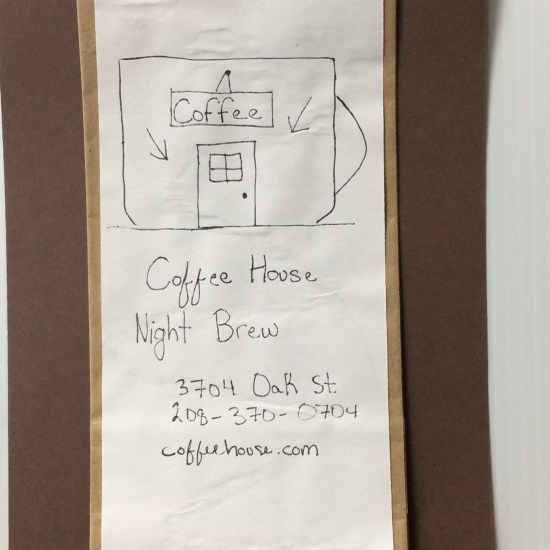 Coffee
Coffee House
Night Brew
3704 Oak St.
208-370-0704
coffeehouse.com